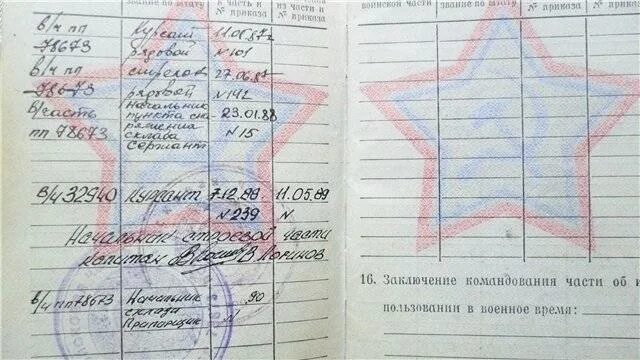 звание по штату
часть и № приказа
из части и № приказа
в/ч пп Курсант 11.06.87г
78673 рядовой №101
в/ч пп стрелок 27.06.87
78673 рядовой №142
в/часть Начальник 23.01.88
пп 78673 пункта сна
ряжения №15
склада
Сержант
в/ч 32940 Курсант 7.12.88 11.05.89
№239 №
Начальник строевой части
капитан В Логинов
в/ч пп 78673 Начальник .90
склада №
Прапорщик
воинской части
звание по штату
№ приказа
и № приказа
16. Заключение командования части об и
пользовании в военное время: